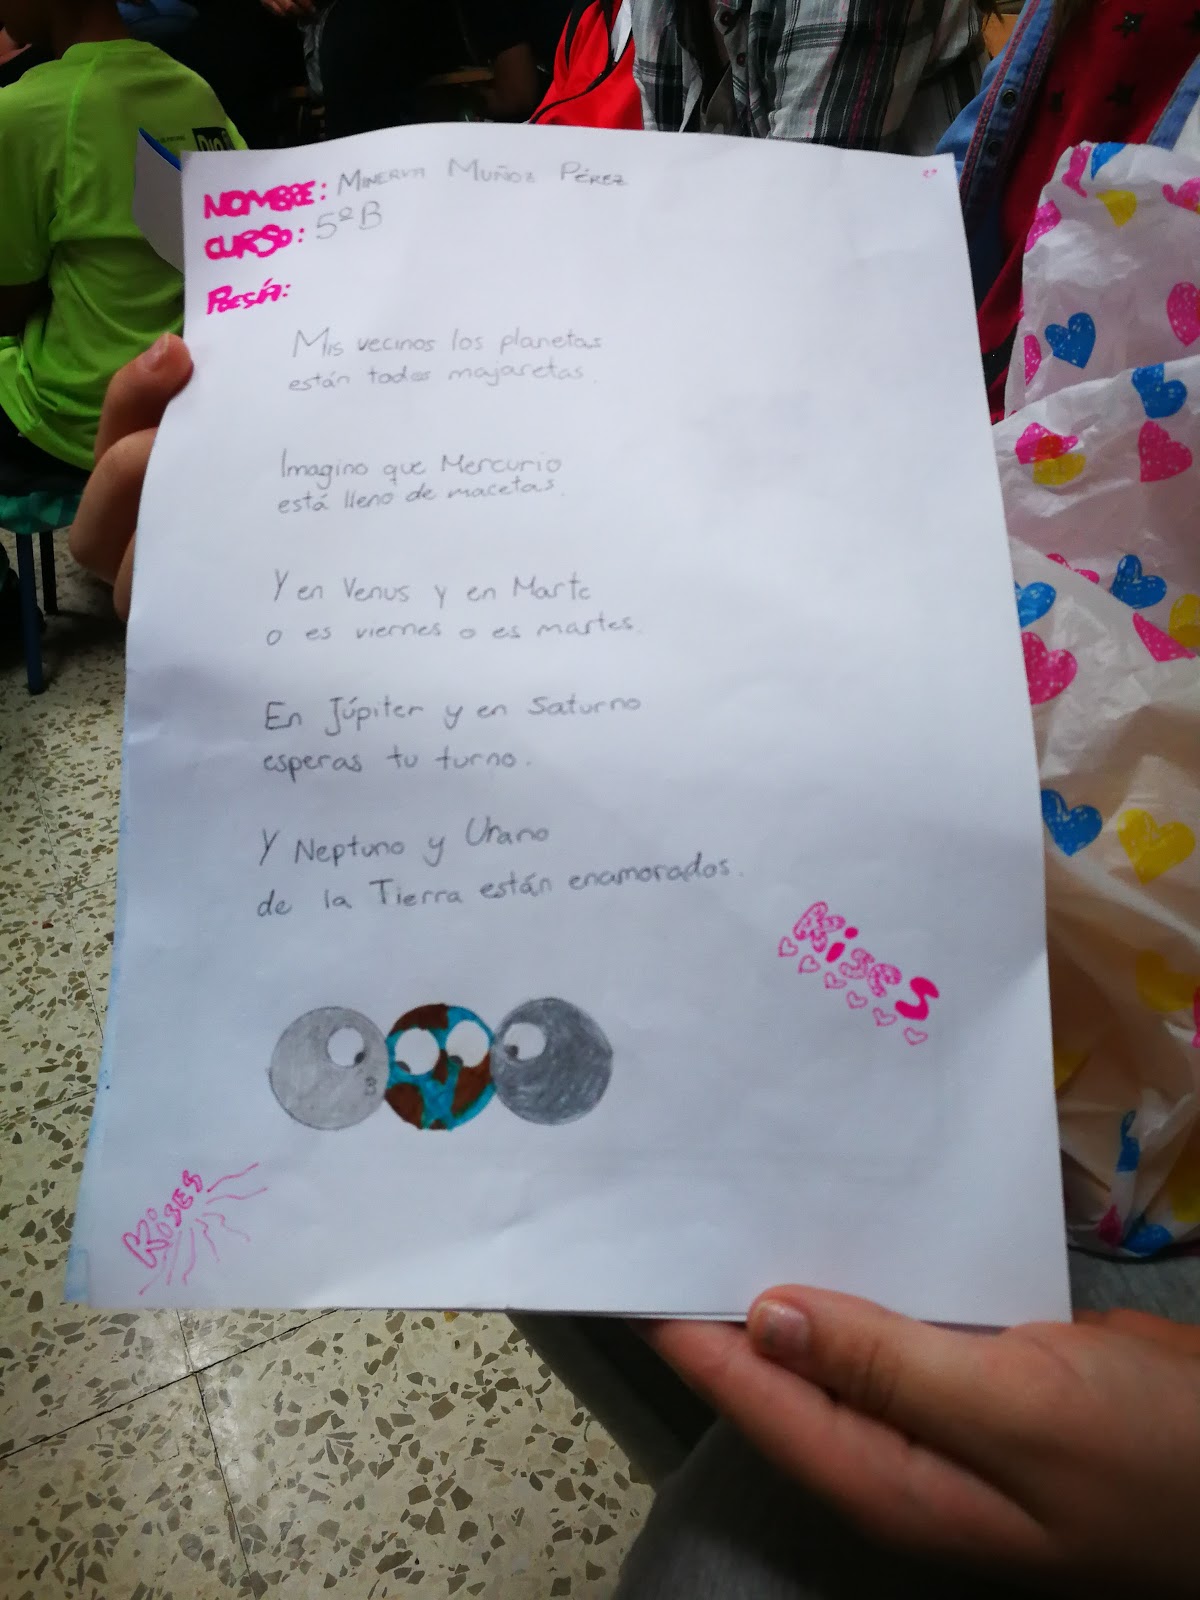 NOMBRE: MINERVA MUÑOZ PÉREZ
CURSO: 5º B
POESÍA:
Mis vecinos los planetas
están todos majaretas.
Imagino que Mercurio
está lleno de macetas.
Y en Venus y en Marte
o es viernes o es martes.
En Júpiter y en Saturno
esperas tu turno.
Y Neptuno y Urano
de la Tierra están enamorados.
Kises
KISES